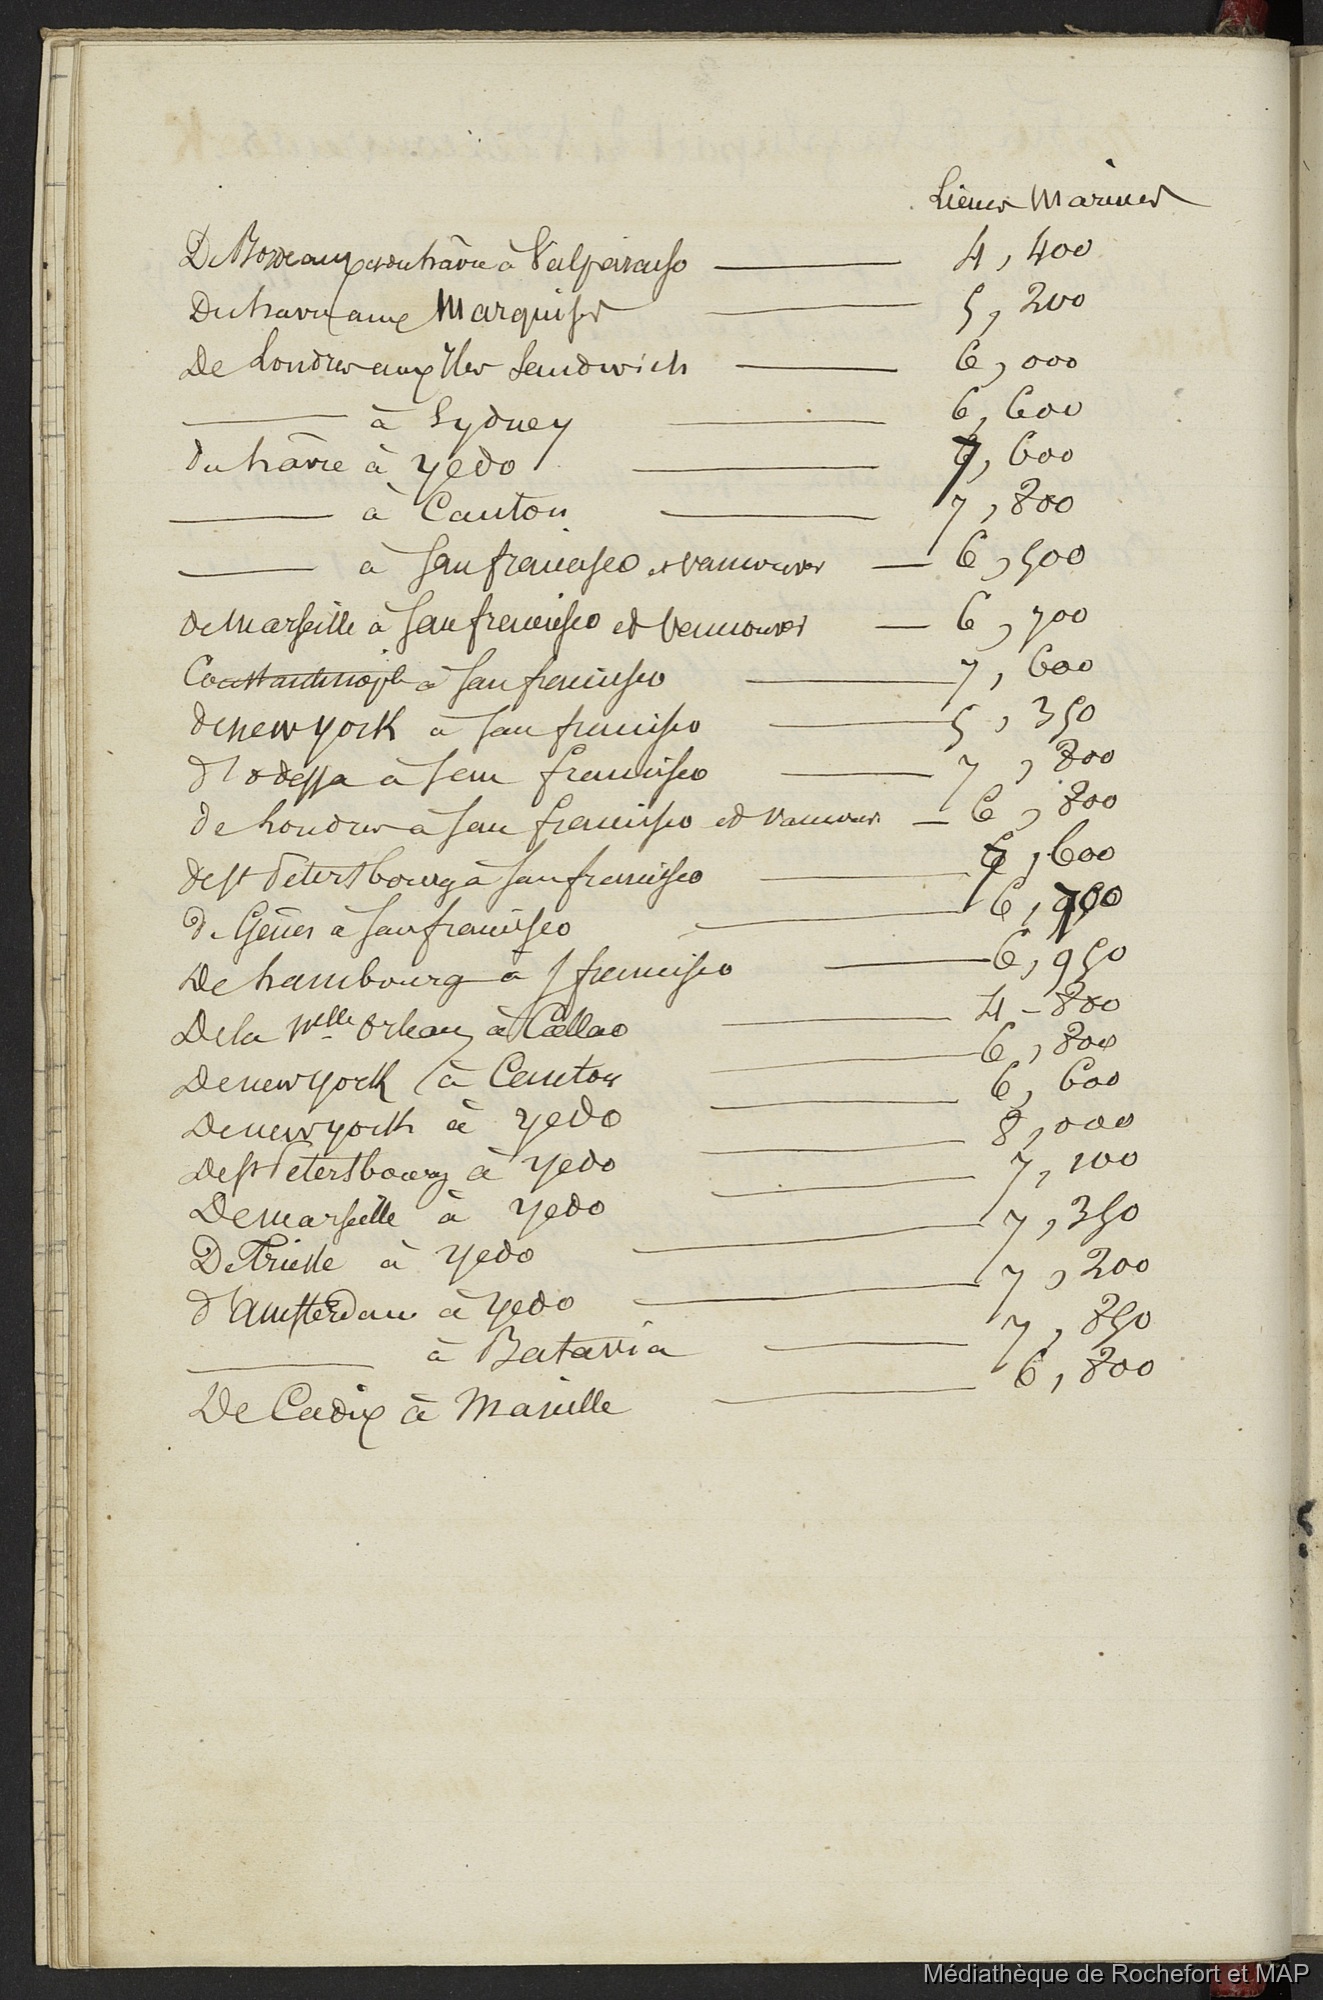 Lieues Marines
De Bordeaux et du hâvre à Valparaiso — 4,400
Du havre aux Marquises — 5,200
De Londres aux Iles Sandwich — 6,000
— à Sydney — 6,600
du hâvre à Yedo — 7,600
— à Canton — 7,800
— à San francisco et Vancouver — 6,500
de Marseille à San francisco et Vancouver — 6,700
Constantinople à San francisco — 7,600
de new york à San francisco — 5,350
d'Odessa à San francisco — 7,800
de Londres à San francisco et Vancouver — 6,800
de St Petersbourg à San francisco — 7,600
de Gênes à San francisco — 6,750
De hambourg à S francisco — 6,950
De la Nlle Orleans à Callao — 4-800
De new york à Canton — 6,800
De new york à Yedo — 6,600
De St Petersbourg à Yedo — 8,000
De Marseille à Yedo — 7,100
De Trieste à Yedo — 7,350
d'Amsterdam à Yedo — 7,200
— à Batavia — 7,850
De Cadix à Manille — 6,800
Médiathèque de Rochefort et MAP